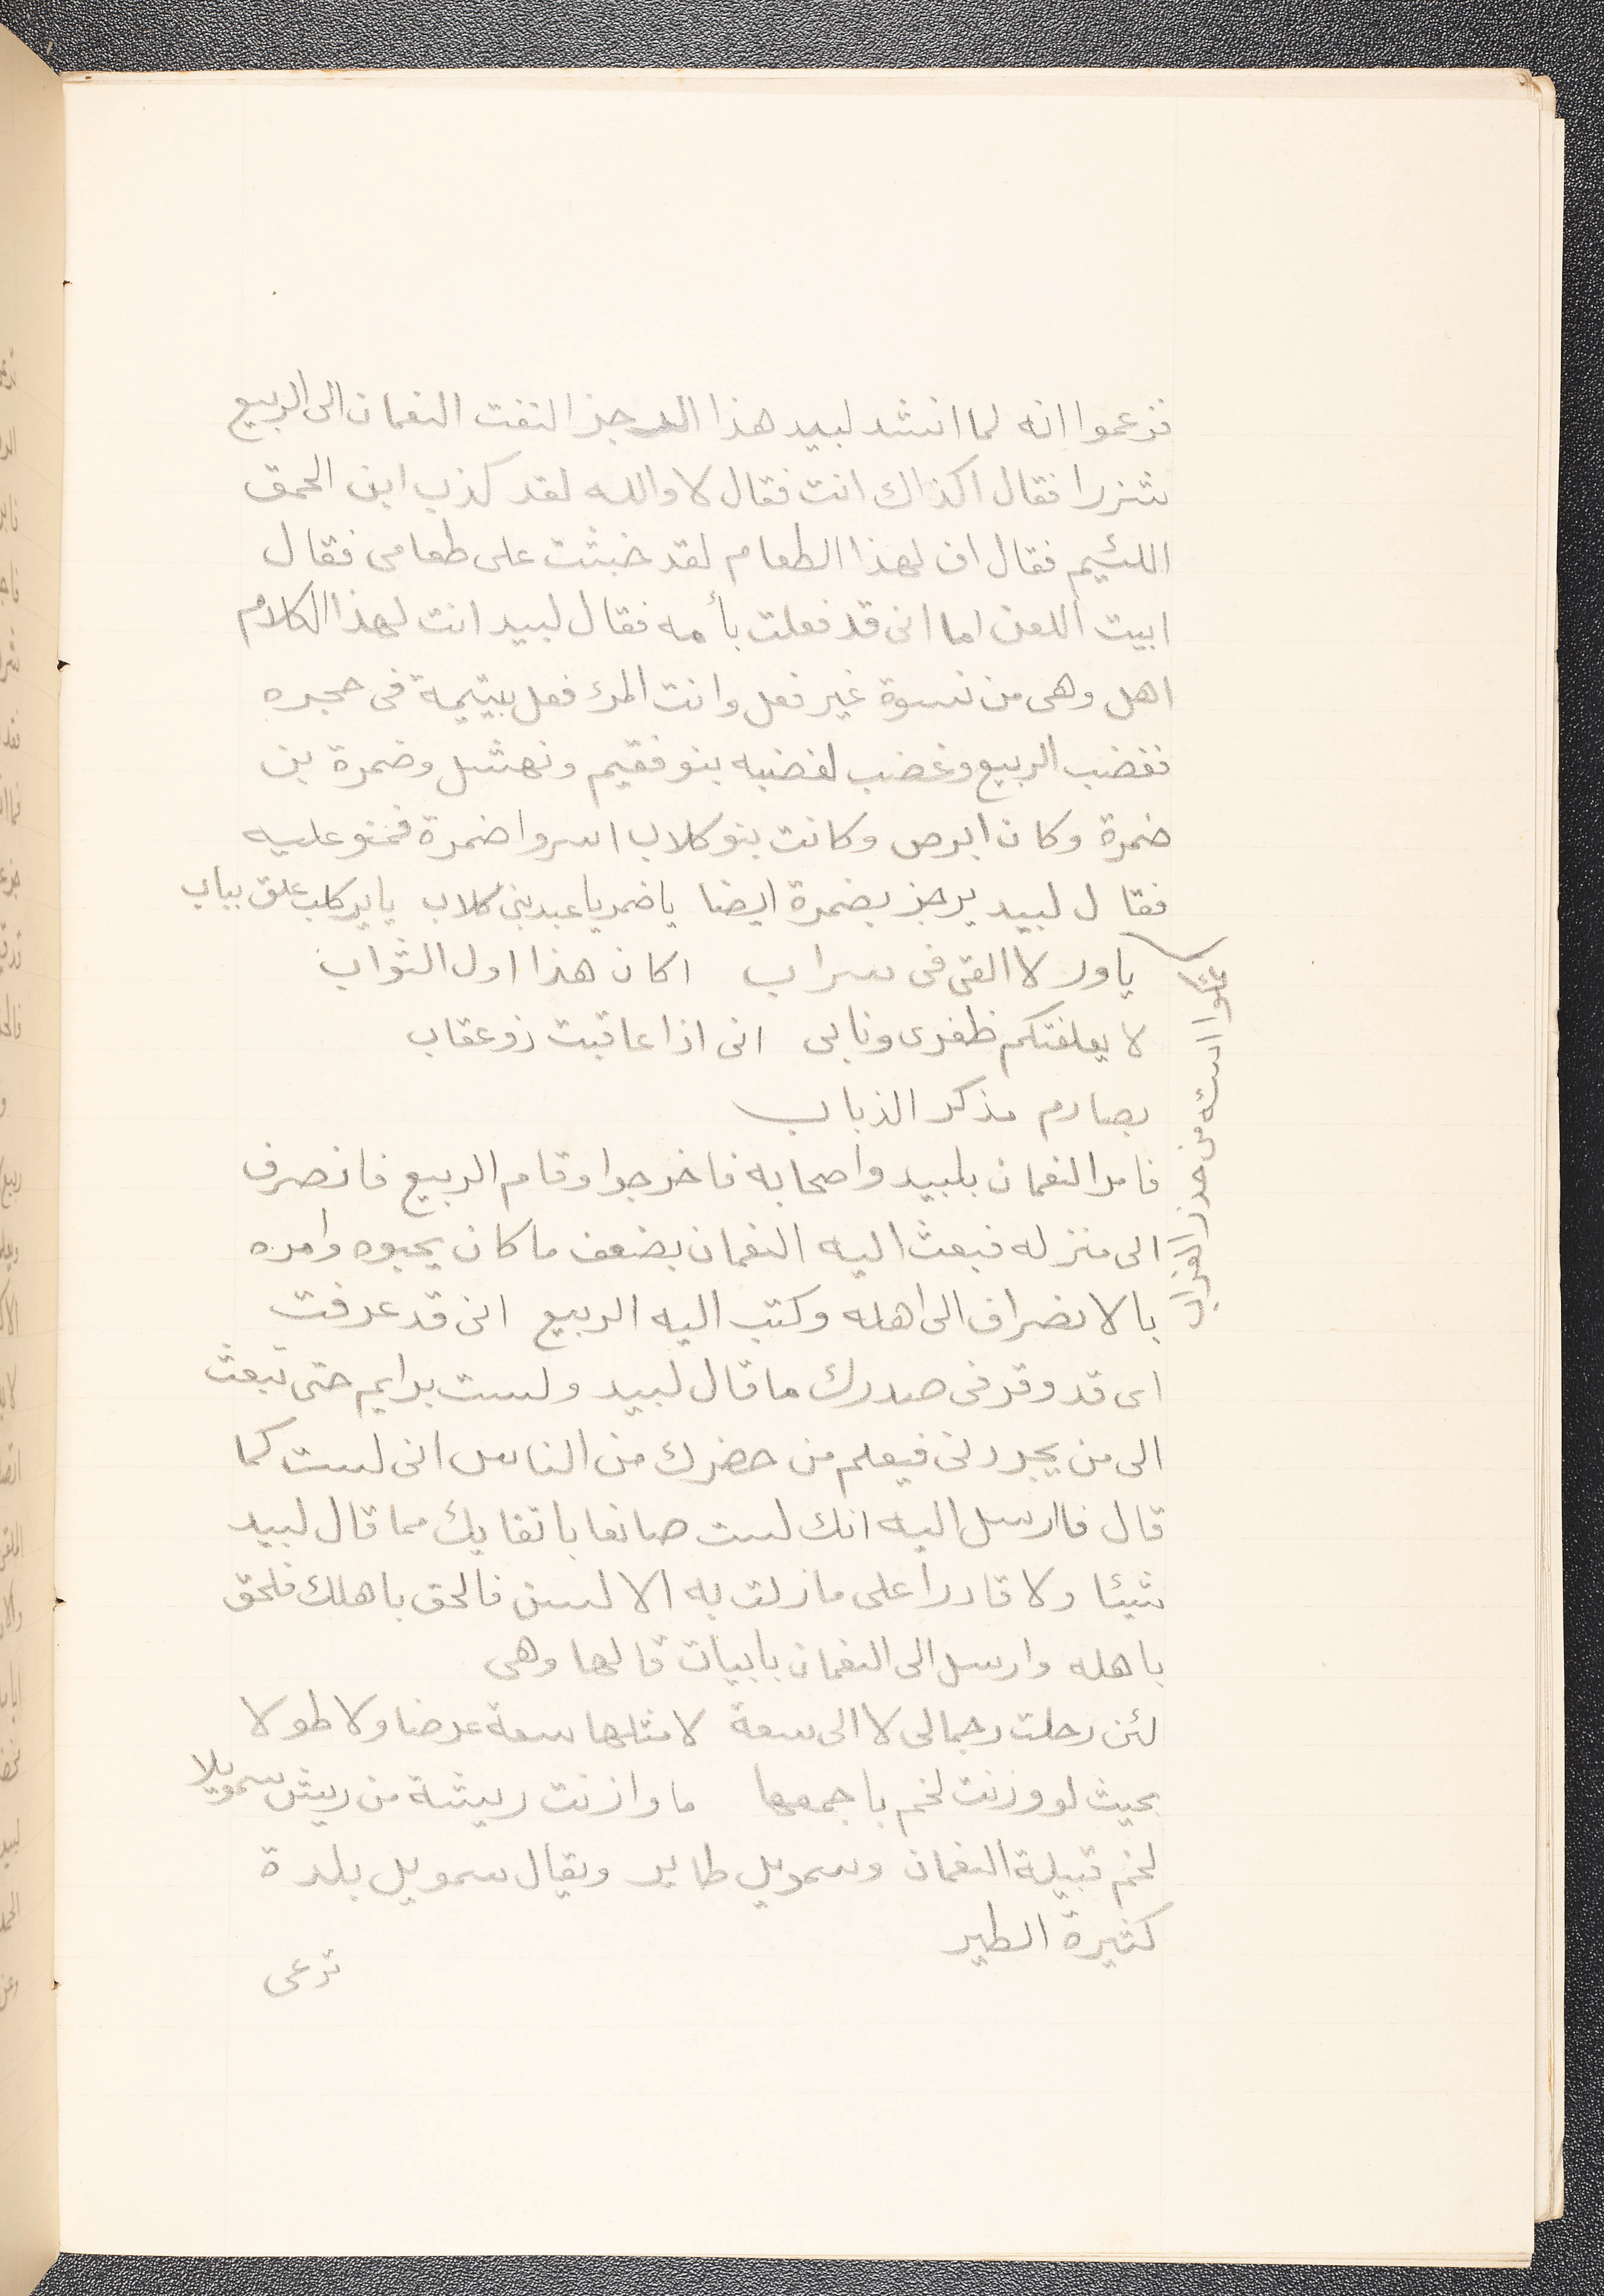 فزعموا انه لما انشد لبيد هذا الرجز التفت النعمان الى الربيع
شزرا فقال اكذاك انت فقال لا والله لقد كذب ابن الحمق
اللئيم فقال اف لهذا الطعام لقد خبثت على طعامى فقال
ابيت اللعن اما انى قد فعلت بأمه فقال لبيد انت لهذا الكلام
اهل وهى من نسوة غير فعل وانت المرء فعل بيتيمة فى حجره
فغضب الربيع وغضب لغضبه بنو فقيم ونهشل وضمرة بن
ضمرة وكان ابرص وكانت بنو كلاب اسروا ضمرة فمنو عليه
فقال لبيد يرجز بضمرة ايضا ياضمر يا عبد بنى كلاب ياير كلب علق بباب
ياور لا القى فى سراب اكان هذا اول الثواب
لا يعلفتكم ظفرى ونابى انى اذا عاقبت ذو عقاب
بصارم مذكر الذباب
فامر النعمان بلبيد واصحابه فاخرجوا وقام الربيع فانصرف
الى منزله فبعث اليه النعمان بضعف ما كان يحبوه وامره
بالانصراف الى اهله وكتب اليه الربيع انى قد عرفت
اى قد وقر فى صدرك ما قال لبيد ولست برايم حتى تبعث
الى من يجردنى فيعلم من حضرك من الناس انى لست كما
قال فاارسل اليه انك لست صانعا باتقايك مما قال لبيد
شيئا ولا قادرا على ما زلت به الالسن فالحق باهلك فلحق
باهله وارسل الى النعمان بابيات قالها وهى
لئن رحلت رجمالى لا الى سعة لا مثلها سعة عرضا ولا طولا
بحيث لو وزنت لخم باجمعها ما وازنت ريشة من ريش سمويلا
لخم قبيلة النعمان وسمويل طاير ويقال سمويل بلدة
كثيرة الطير
ترعى
استه من حذر الغراب